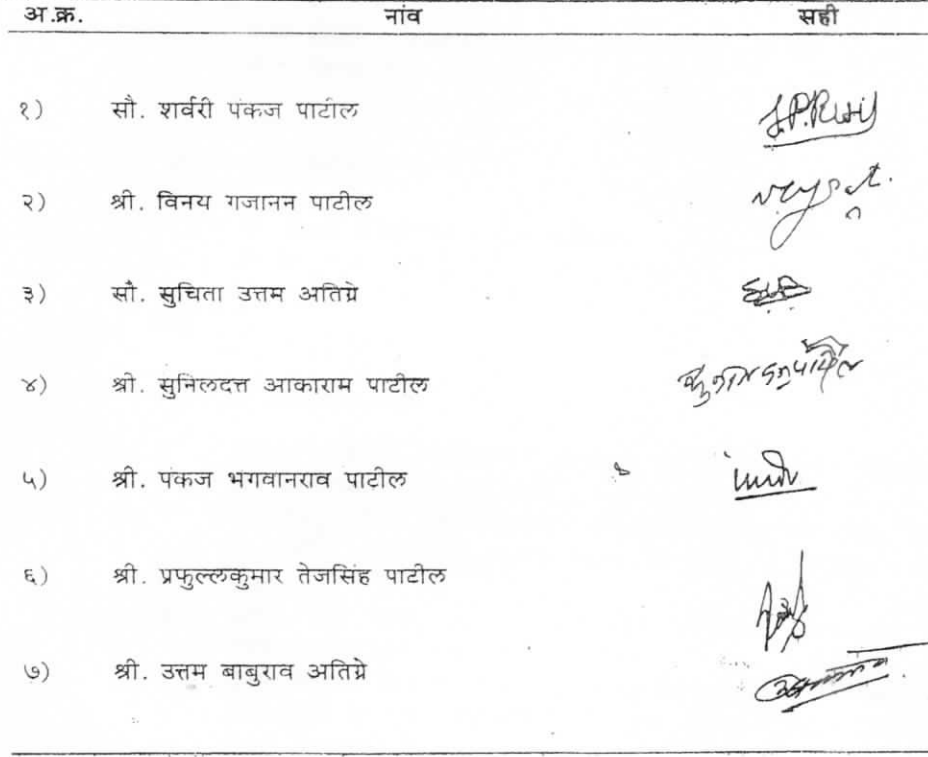 अ.क्र. नांव सही
१) सौ. शर्वरी पंकज पाटील
२) श्री. विनय गजानन पाटील
३) सौ. सुचिता उत्तम अतिग्रे
४) श्री. सुनिलदत्त आकाराम पाटील
५) श्री. पंकज भगवानराव पाटील
६) श्री. प्रफुल्लकुमार तेजसिंह पाटील
७) श्री. उत्तम बाबुराव अतिग्रे